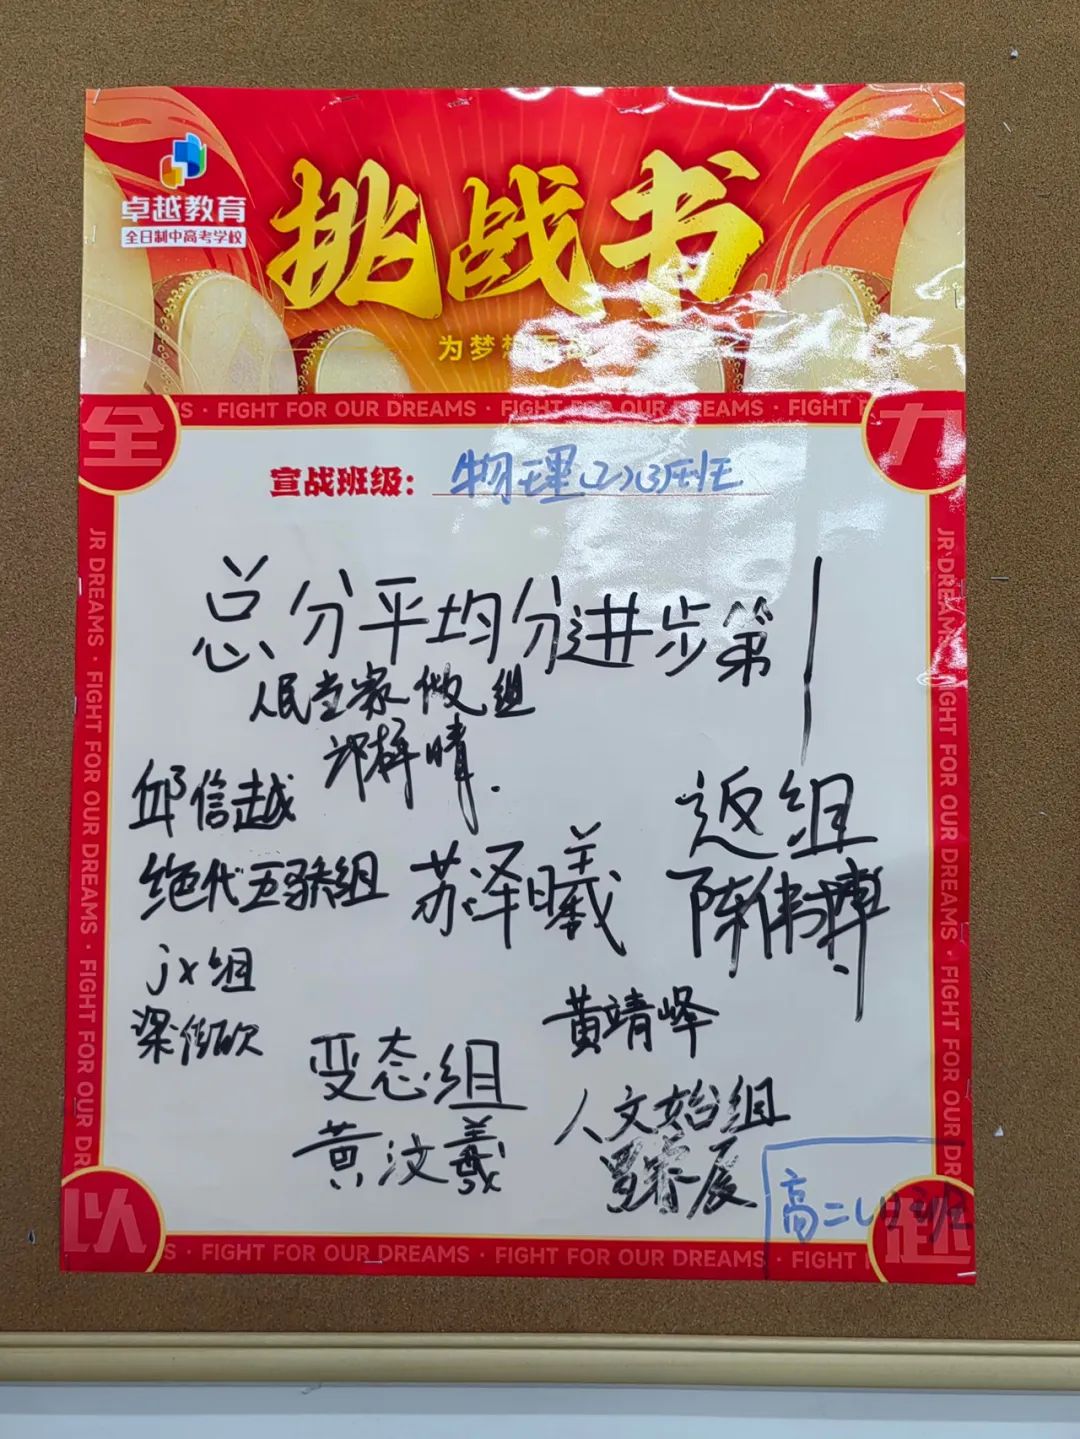 卓越教育
全日制中高考学校
挑战书
为梦想而战
S · FIGHT FOR OUR DREAMS · FIGHT FOR OUR DREAMS · FIGHT F
全
力
宣战班级: 物理(2)(3)班
总分平均分进步第1
人民当家做组
邓梓晴.
邱信越
返组
绝代五骄组
苏泽曦
陈伟
jx组
黄靖峰
梁
变态组
人文始组
黄汶羲
展
高二(1)班
JR DREAMS · FIGHT FOR OUR DREAMS · FIGHT FOR OUR D
JR DREAMS · FIGHT FOR OUR DREAMS · FIGHT FOR OUR D
以
赴
S · FIGHT FOR OUR DREAMS · FIGHT FOR OUR DREAMS · FIGHT F